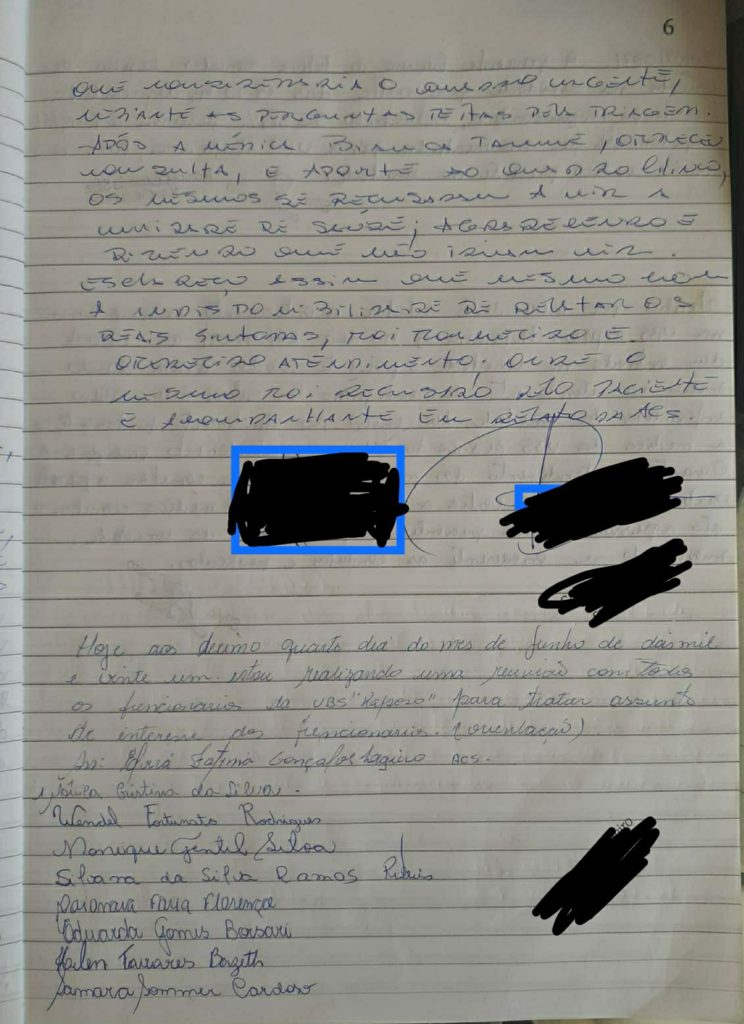 6
QUE CONSIDERARIA O QUADRO URGENTE,
MEDIANTE AS PERGUNTAS FEITAS PELA TRIAGEM.
APÓS A MÉDICA BIANCA, OFERECEU
CONSULTA, E APORTE AO QUADRO CLÍNICO,
OS MESMOS SE RECUSARAM A VIR A
UNIDADE DE SAÚDE, AGRADECENDO E
DIZENDO QUE NÃO IRIAM VIR.
ESCLAREÇO ASSIM QUE MESMO COM
A INDISPONIBILIDADE DE RELATAR OS
REAIS SINTOMAS, FOI FORNECIDO E
OFERECIDO ATENDIMENTO, ONDE O
MESMO FOI RECUSADO PELO PACIENTE
E ACOMPANHANTE EM RELATO DA ACS.
Hoje aos decimo quarto dia do mes de Junho de dois mil
e vinte um estou realizando uma reunião com todos
os funcionarios da UBS "Raposo" para tratar assunto
de interesse dos funcionarios. (orientação)
Fatima Gonçalves ACS.
Cristina da Silva.
Wendel Fortunato Rodrigues
Monique Gentil Silva
Silvana da Silva Ramos Ribeiro
Daionara Maria Florençe
Eduarda Gomes Borsari
Hailen Tavares Borzeth
Samara Sommer Cardoso